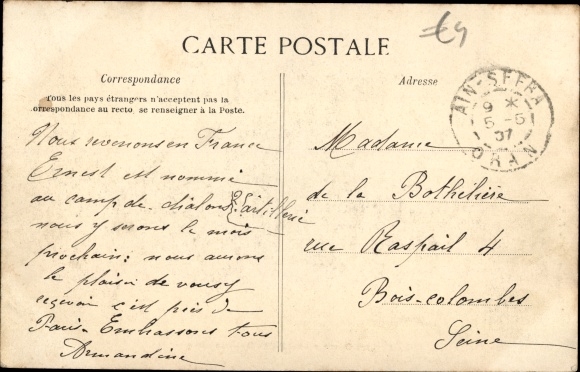 €4
CARTE POSTALE
Correspondance
Tous les pays étrangers n'acceptent pas la
correspondance au recto, se renseigner à la Poste.
Nous revenons en France
Ernest est nommé
au camp de chalons P. l'artillerie
nous y serons le mois
prochain; nous aurons
le plaisir de vous y
recevoir c'est près de
Paris. Embrassons tous
Armandine
Adresse
AIN-SEFRA
9 *
5 -5
07
ORAN
Madame
de la Bothélière
rue Raspail 4
Bois-colombes
Seine